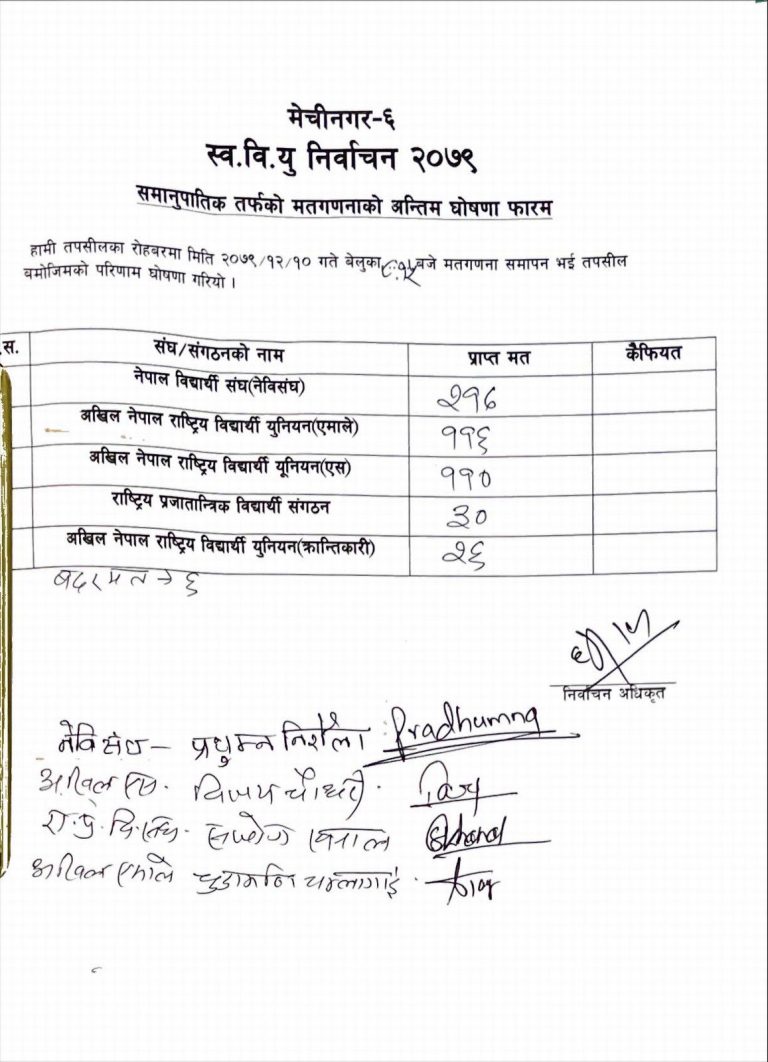 मेचीनगर-६
स्व.वि.यु निर्वाचन २०७९
समानुपातिक तर्फको मतगणनाको अन्तिम घोषणा फारम
हामी तपसीलका रोहबरमा मिति २०७९/१२/१० गते बेलुका बजे मतगणना समापन भई तपसील
बमोजिमको परिणाम घोषणा गरियो ।
.स. संघ/संगठनको नाम प्राप्त मत कैफियत
नेपाल विद्यार्थी संघ(नेविसंघ) २१८
अखिल नेपाल राष्ट्रिय विद्यार्थी युनियन(एमाले) ११६
अखिल नेपाल राष्ट्रिय विद्यार्थी यूनियन(एस) ११०
राष्ट्रिय प्रजातान्त्रिक विद्यार्थी संगठन ३०
अखिल नेपाल राष्ट्रिय विद्यार्थी युनियन(क्रान्तिकारी) २६
बदर मत → ६
निर्वाचन अधिकृत
नेविसंघ - प्रधुम्न निरौला Pradhumna
अखिल एस. विजय चौधरी
रा.प्र.वि.
अखिल एमाले चुडामनि चम्लागाई